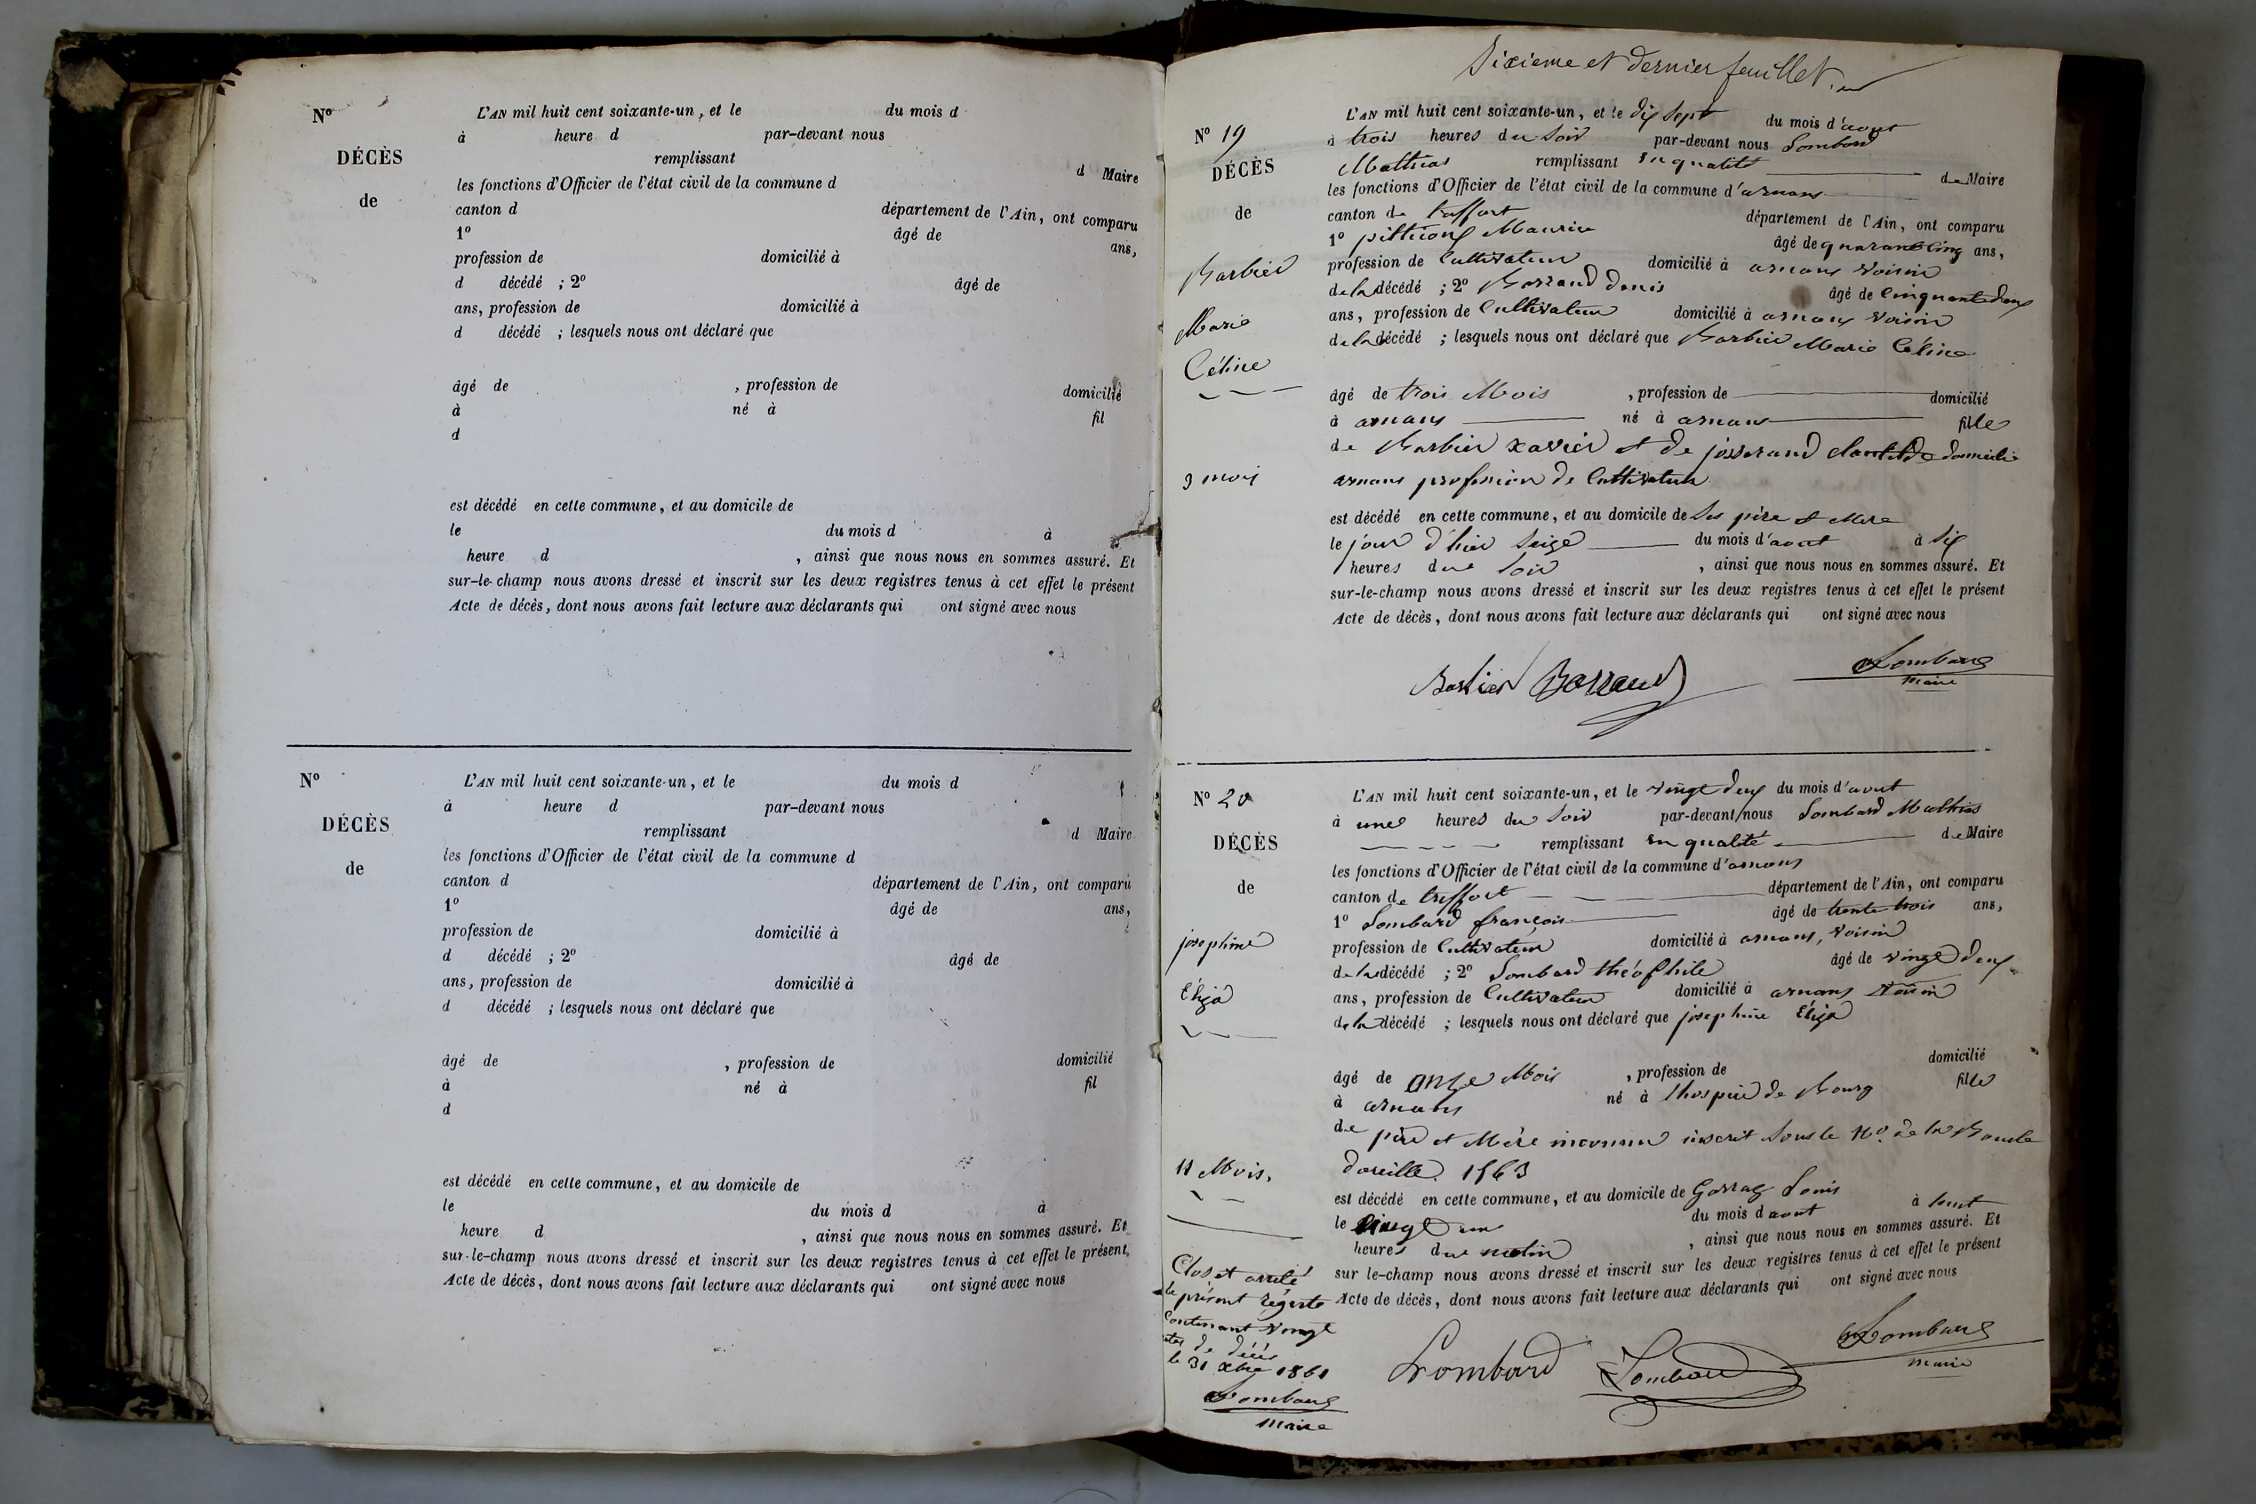 N°
DÉCÈS
de
L'AN mil huit cent soixante-un, et le du mois d
à heure d par-devant nous
remplissant d Maire
les fonctions d'Officier de l'état civil de la commune d
canton d département de l'Ain, ont comparu
1° âgé de ans,
profession de domicilié à
d décédé ; 2° âgé de
ans, profession de domicilié à
d décédé ; lesquels nous ont déclaré que
âgé de , profession de domicilié
à né à fil
d
est décédé en cette commune, et au domicile de
le du mois d à
heure d , ainsi que nous nous en sommes assuré. Et
sur-le-champ nous avons dressé et inscrit sur les deux registres tenus à cet effet le présent
Acte de décès, dont nous avons fait lecture aux déclarants qui ont signé avec nous
N°
DÉCÈS
de
L'AN mil huit cent soixante-un, et le du mois d
à heure d par-devant nous
remplissant d Maire
les fonctions d'Officier de l'état civil de la commune d
canton d département de l'Ain, ont comparu
1° âgé de ans,
profession de domicilié à
d décédé ; 2° âgé de
ans, profession de domicilié à
d décédé ; lesquels nous ont déclaré que
âgé de , profession de domicilié
à né à fil
d
est décédé en cette commune, et au domicile de
le du mois d à
heure d , ainsi que nous nous en sommes assuré. Et
sur-le-champ nous avons dressé et inscrit sur les deux registres tenus à cet effet le présent,
Acte de décès, dont nous avons fait lecture aux déclarants qui ont signé avec nous
Sixieme et dernier feuillet.
N° 19
DÉCÈS
de
Barbier
Marie
Céline
3 mois
L'AN mil huit cent soixante-un, et le dix sept du mois d'aout
à trois heures du soir par-devant nous Lombard
Mathias remplissant en qualité de Maire
les fonctions d'Officier de l'état civil de la commune d'arnans
canton de treffort département de l'Ain, ont comparu
1° pittiong Maurice âgé de quarante cinq ans,
profession de Cultivateur domicilié à arnans voisin
de la décédé ; 2° Borrand denis âgé de Cinquante deux
ans, profession de Cultivateur domicilié à arnans voisin
de la décédé ; lesquels nous ont déclaré que Barbier Marie Céline
âgé de trois Mois , profession de domicilié
à arnans né à arnans fille
de Barbier xavier et de josserand clautilde domicilié
arnans profession de Cultivateur
est décédé en cette commune, et au domicile de Ses père et Mere
le jour d'hier Seize du mois d'aout à Six
heures du Soir , ainsi que nous nous en sommes assuré. Et
sur-le-champ nous avons dressé et inscrit sur les deux registres tenus à cet effet le présent
Acte de décès, dont nous avons fait lecture aux déclarants qui ont signé avec nous
Barbier Borrand Lombard
Maire
N° 20
DÉCÈS
de
josephine
Eliza
11 Mois.
L'AN mil huit cent soixante-un, et le vingt deux du mois d'aout
à une heures du Soir par-devant nous Lombard Mathias
remplissant en qualité de Maire
les fonctions d'Officier de l'état civil de la commune d'arnans
canton de treffort département de l'Ain, ont comparu
1° Lombard françois âgé de trente trois ans,
profession de Cultivateur domicilié à arnans, voisin
de la décédé ; 2° Lombard théophile âgé de vingt deux
ans, profession de Cultivateur domicilié à arnans voisin
de la décédé ; lesquels nous ont déclaré que josephine Eliza
âgé de onze Mois , profession de domicilié
à arnans né à lhospice de Bourg fille
de père et Mère inconnu inscrit Sous le N° de la Boucle
doreille. 1563
est décédé en cette commune, et au domicile de Louis
le vingt un du mois d aout à
heures du matin , ainsi que nous nous en sommes assuré. Et
sur le-champ nous avons dressé et inscrit sur les deux registres tenus à cet effet le présent
Acte de décès, dont nous avons fait lecture aux déclarants qui ont signé avec nous
Lombard Lombard Lombard
Maire
Clos et arrêté
le présent régistre
Contenant vingt
actes de décès
le 31 xbre 1861
Lombard
Maire